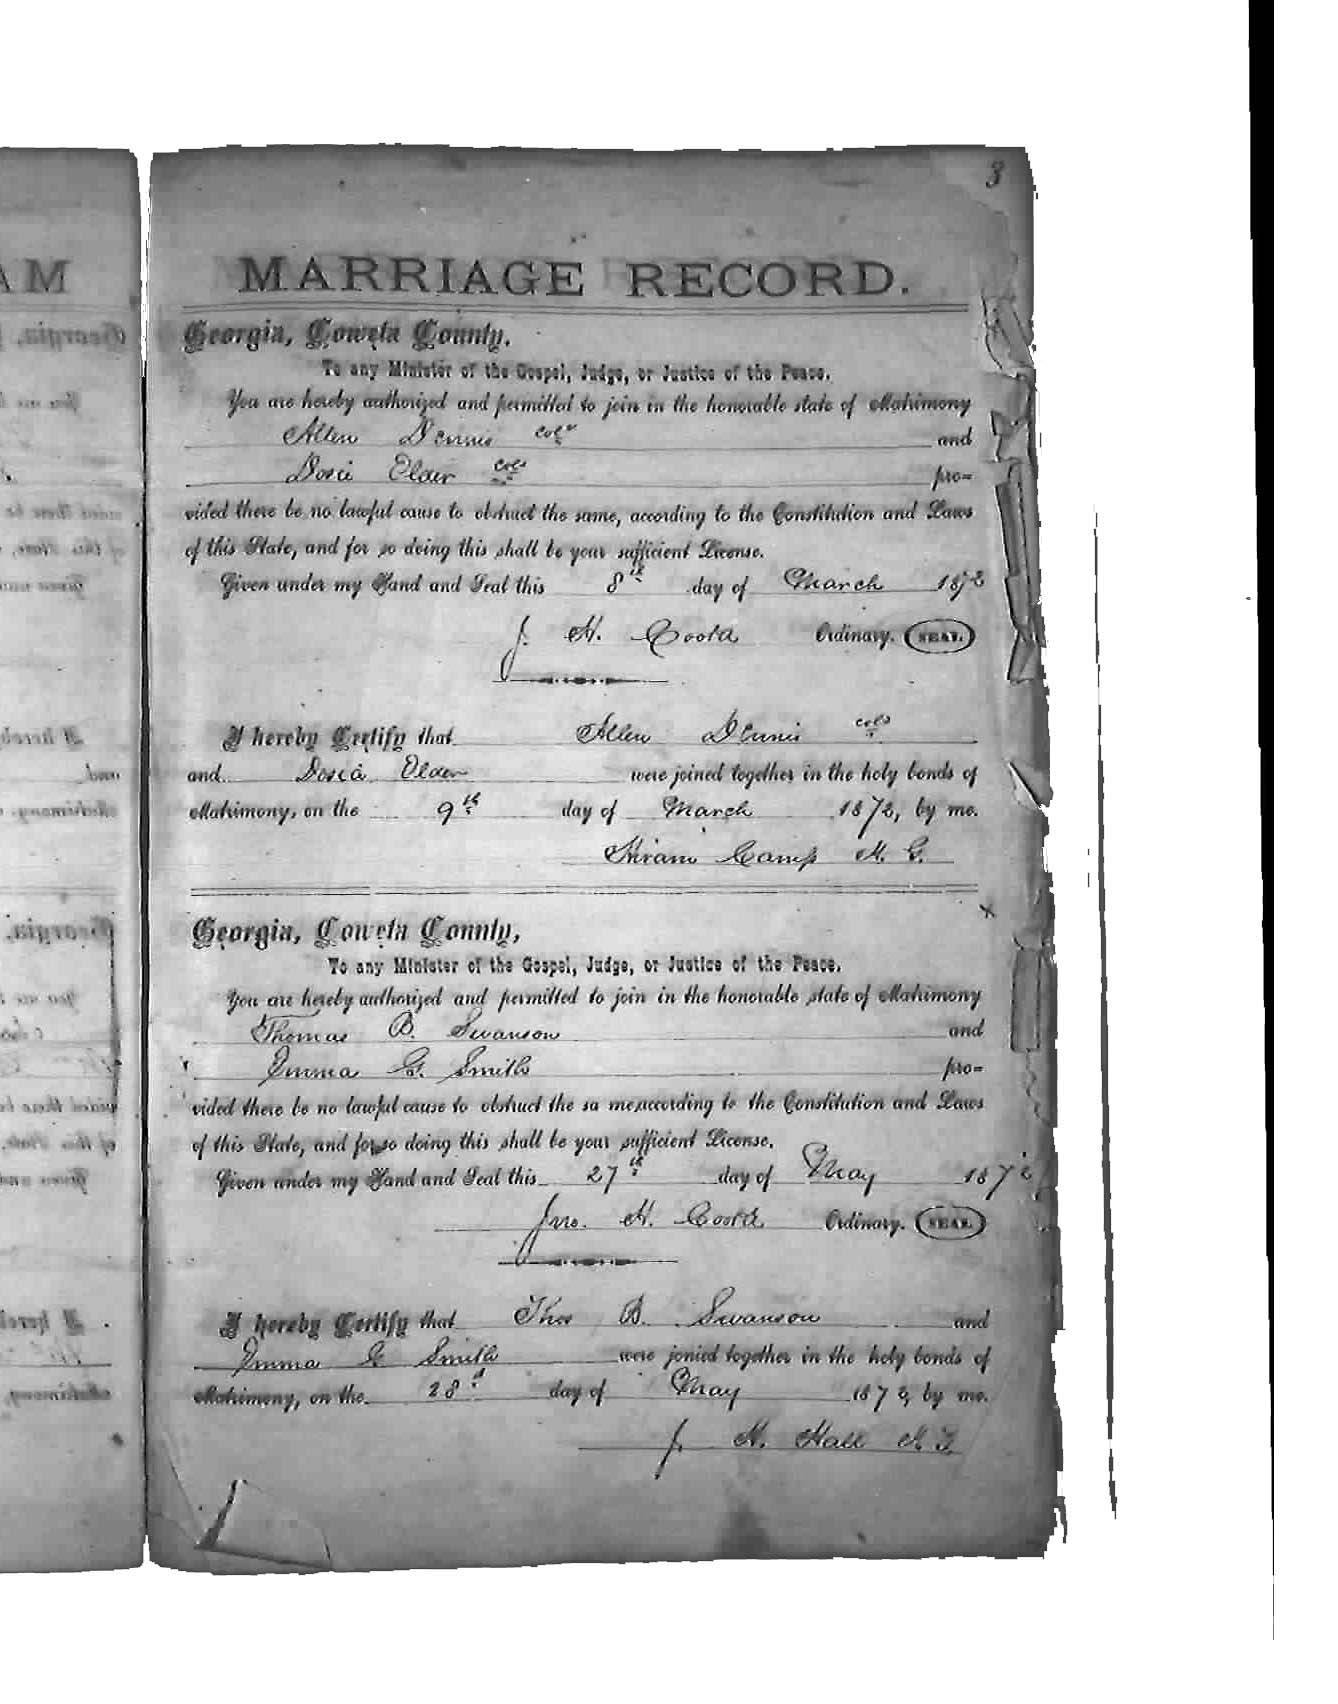 3
MARRIAGE RECORD.
Georgia, Coweta County.
To any Minister of the Gospel, Judge, or Justice of the Peace.
You are hereby authorized and permitted to join in the honorable state of Matrimony
Allen Dennis cold and
Dosia Elder cold pro=
vided there be no lawful cause to obstruct the same, according to the Constitution and Laws
of this State, and for so doing this shall be your sufficient License.
Given under my Hand and Seal this 8th day of March 1872
J. H. Cooke Ordinary. SEAL.
I hereby Certify that Allen Dennis cold
and Dosia Elder were joined together in the holy bonds of
Matrimony, on the 9th day of March 1872, by me.
Hiram Camp M. G.
Georgia, Coweta County,
To any Minister of the Gospel, Judge, or Justice of the Peace.
You are hereby authorized and permitted to join in the honorable state of Matrimony
Thomas B. Swanson and
Emma G. Smith pro=
vided there be no lawful cause to obstruct the sa me,according to the Constitution and Laws
of this State, and for so doing this shall be your sufficient License.
Given under my Hand and Seal this 27th day of May 1872
Jno. H. Cooke Ordinary. SEAL.
I hereby Certify that Thos B. Swanson and
Emma G Smith were jonied together in the holy bonds of
Matrimony, on the 28th day of May 1872, by me.
J. H. Hall M. G.